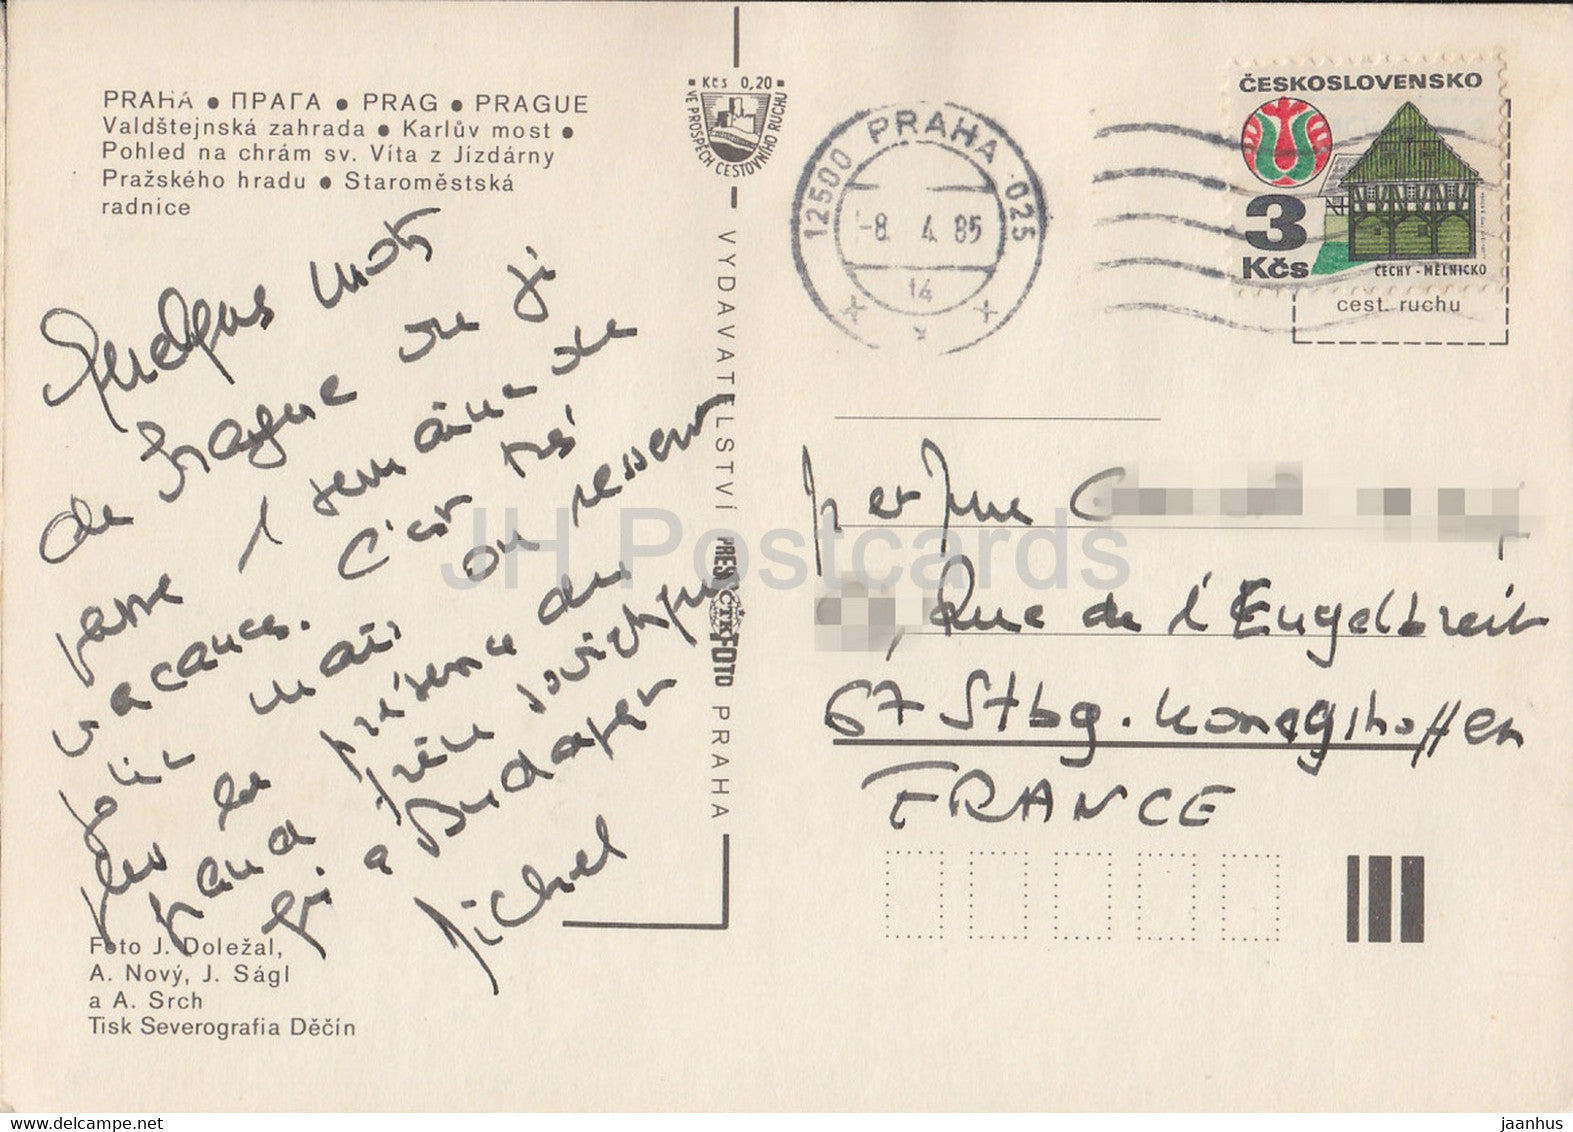 PRAHA • ПРАГА • PRAG • PRAGUE
Valdštejnská zahrada • Karlův most •
Pohled na chrám sv. Víta z Jízdárny
Pražského hradu • Staroměstská
radnice
Quelques mots
de Prague où je
passe 1 semaine de
vacances. C'est très
joli mais on ressent
plus la présence du
grand frère soviétique
qu'à Budapest
Michel
Foto J. Doležal,
A. Nový, J. Ságl
a A. Srch
Tisk Severografia Děčín
Kčs 0,20
VE PROSPĚCH CESTOVNÍHO RUCHU
VYDAVATELSTVÍ PRESSFOTO PRAHA
ČTK
12500 PRAHA 025
-8. 4. 85
14
ČESKOSLOVENSKO
3
Kčs
ČECHY - MĚLNICKO
cest. ruchu
et Mme
, Rue de l'Engelbreit
67 Stbg. Koenigshoffen
FRANCE
JH Postcards
delcampe.net
jaanhus